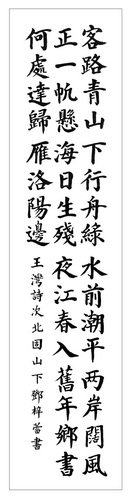 客路青山下行舟綠水前潮平两岸闊風
正一帆懸海日生殘夜江春入舊年鄉書
何處達歸雁洛陽邊
王灣詩次北固山下鄧梓萱書